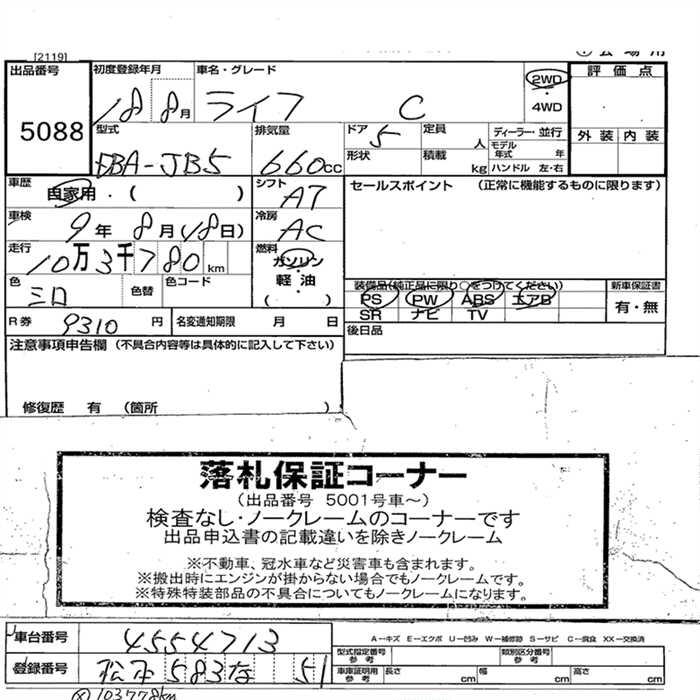 [2119]
出品番号 初度登録年月 車名・グレード 2WD 評価点
18 8月 ライフ C ・4WD
5088
型式 排気量 ドア 5 定員 人 ディーラー・並行 外装 内装
DBA-JB5 660cc 形状 積載 kg モデル年式 年
ハンドル 左・右
車歴 自家用・( ) シフト AT セールスポイント (正常に機能するものに限ります)
車検 9年 8月(18日) 冷房 AC
走行 10万3千780km 燃料 ガソリン・軽油・( )
色 シロ 色替 色コード 装備品(純正品に限り○をつけてください) 新車保証書
PS PW ABS エアB 有・無
R券 9310円 名変通知期限 月 日 SR ナビ TV
後日品
注意事項申告欄 (不具合内容等は具体的に記入して下さい)
修復歴 有 (箇所 )
落札保証コーナー
(出品番号 5001号車~)
検査なし・ノークレームのコーナーです
出品申込書の記載違いを除きノークレーム
※不動車、冠水車など災害車も含まれます。
※搬出時にエンジンが掛からない場合でもノークレームです。
※特殊特装部品の不具合についてもノークレームになります。
A－キズ E－エクボ U－凹み W－補修跡 S－サビ C－腐食 XX－交換済
車台番号 4554713 型式指定番号 参考 類別区分番号 参考
登録番号 松本 583 な 51 車庫証明用 参考 長さ cm 幅 cm 高さ cm
103778km